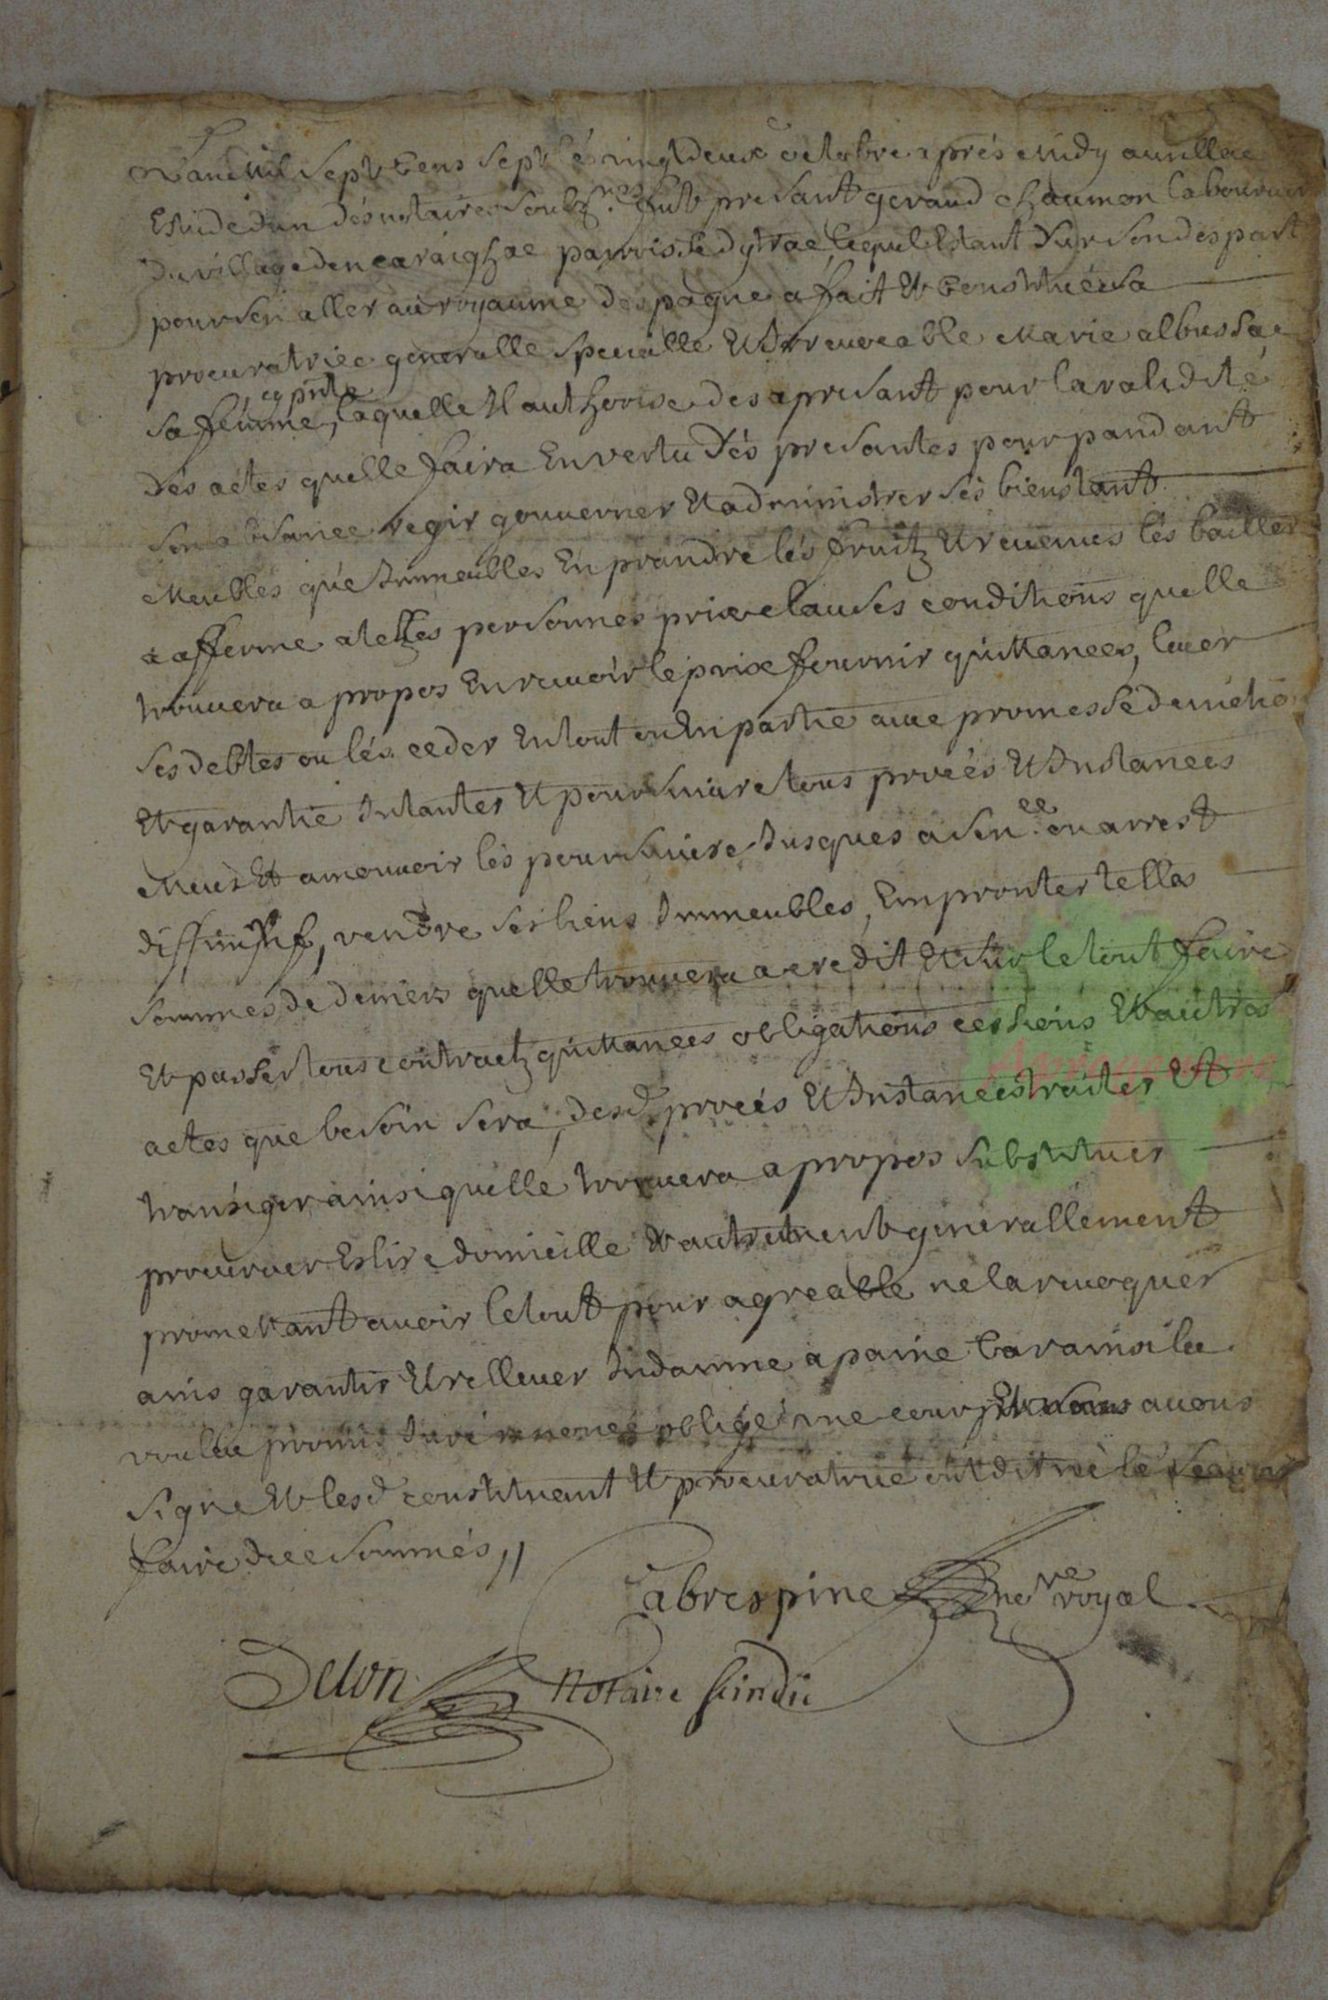 Lan Mil Sept Cens Sept & vingt deux octobre apres midy aurillac
Estude dun des notaires soubz.nes fut presant geraud chaumon laboureur
du village dencaraighac parroisse dytrac, lequel Estant sur son despart
pour sen aller au royaume despagne a fait Et Constitué sa
procuratrice generalle specialle Et Irrevocable Marie albussac
cy pnte
sa femme, laquelle Il authorise des a presant pour la validité
des actes quelle faira En vertu des presantes pour pandant
son absance regir gouverner Et administrer ses biens tant
Meubles que Immeubles En prandre les fruitz Et revenus les bailler
a afferme a telles personnes prix clauses conditions quelle
trouvera a propos En recevoir le prix fournir quittances, lever
ses debtes ou les ceder En tout ou En partie avec promesse
Et garantie Intanter Et poursuivre tous procés Et Instances
Meus Et a mouvoir les poursuivre Jusques a sen.ce ou arrest
diffinitif, vendre ses biens Immeubles, Empronter telles
sommes de deniers quelle trouvera a credit Et sur le tout faire
Et passer tous contractz quittances obligations cessions Et autres
actes que besoin sera, desd. procés Et Instances traiter Et
transiger ainsi quelle trouvera a propos substituer
procurer Eslire domicille Et autrement generallement
prometant avoir le tout pour agreable ne la revoquer
ains garantir Et rellever Indamne a paine Car ainsi la
voullu promis Juré renoncé obligé me cour Et nous avons
signe Et lesd. constituant Et procuratrice ont dit ne le scavoir
faire de ce sommés,,
Cabrespine no.re royal
Delon Notaire scindic